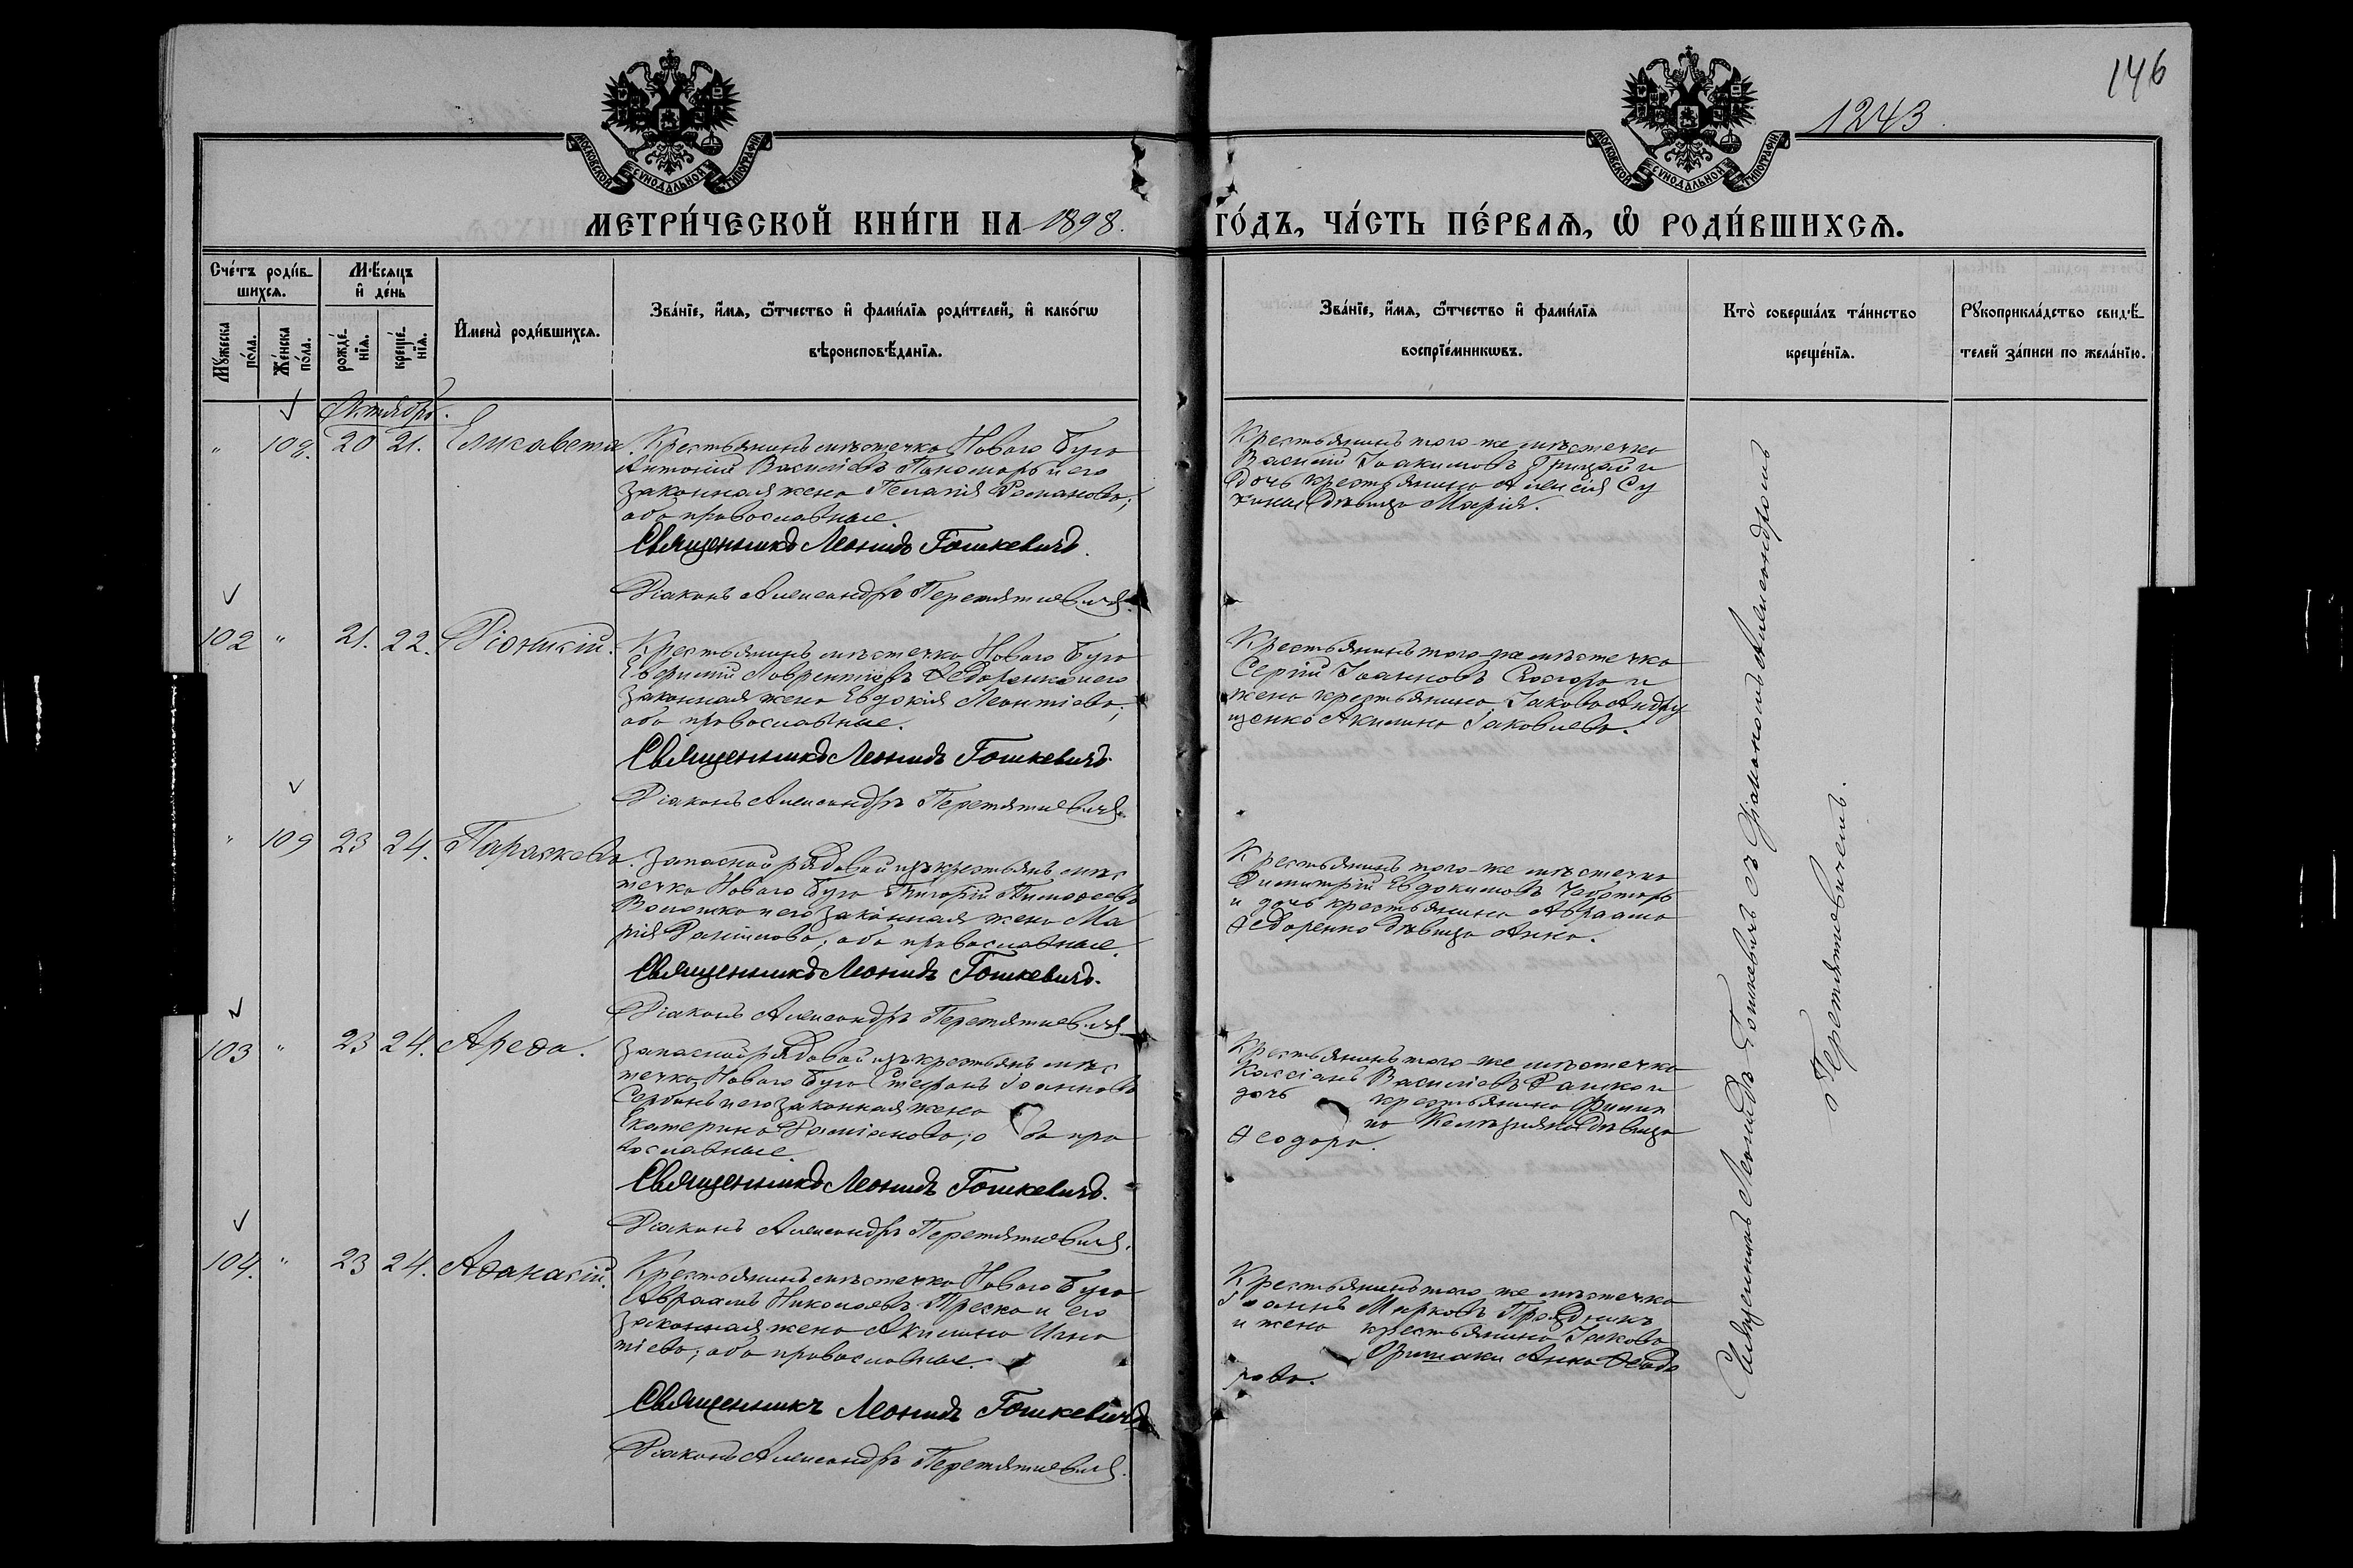 146
1243.
МОСКОВСКОЙ СѴНОДАЛЬНОЙ ТИПОГРАФІИ
МОСКОВСКОЙ СѴНОДАЛЬНОЙ ТИПОГРАФІИ
МЕТРИ́ЧЕСКОЙ КНИ́ГИ НА 1898.
ГО́ДЪ, ЧА́СТЬ ПЕ́РВАѦ, Ѽ РОДИ́ВШИХСѦ.
Сче́тъ роди́в-
шихсѧ.
Мꙋ́жеска по́ла.
Же́нска по́ла.
Мѣ́сѧцъ
и҆ де́нь
рожде́-
нїѧ.
креще́-
нїѧ.
И҆мена̀ роди́вшихсѧ.
Зва́нїе, и҆́мѧ, ѻ҆́тчество и҆ фами́лїѧ роди́телей, и҆ како́гѡ
вѣроисповѣ́данїѧ.
Зва́нїе, и҆́мѧ, ѻ҆́тчество и҆ фами́лїѧ
воспрїе́мникѡвъ.
Кто̀ соверша́лъ та́инство
креще́нїѧ.
Рꙋкоприкла́дство свидѣ́-
телей за́писи по жела́нїю.
Октябрь.
" 108. 20 21. Елисавета.
Крестьянинъ мѣстечка Новаго Буга
Антоній Васильевъ Пономарь и его
законная жена Пелагія Романова;
оба православные.
Священникъ Леонидъ Гошкевичъ.
Діаконъ Александръ Перетятковичъ.
Крестьянинъ того-же мѣстечка
Василій Іоакимовъ Грицай и
дочь крестьянина Алексія Су
хины дѣвица Марія.
102 " 21. 22. Діонисій.
Крестьянинъ мѣстечка Новаго Буга
Евфимій Лаврентіевъ Ѳедоренко и его
законная жена Евдокія Леонтіева;
оба православные.
Священникъ Леонидъ Гошкевичъ.
Діаконъ Александръ Перетятковичъ.
Крестьянинъ того-же мѣстечка
Сергій Іоанновъ и
жена крестьянина Іакова Андру
щенко Акилина Іаковлева.
" 109 23 24. Параскева.
Запасной рядовой изъ крестьянъ мѣс
течка Новаго Буга Григорій Тимоѳеевъ
Волошко и его законная жена Ма
рія Даніилова; оба православные.
Священникъ Леонидъ Гошкевичъ.
Діаконъ Александръ Перетятковичъ.
Крестьянинъ того-же мѣстечка
Димитрій Евдокимовъ Чеботарь
и дочь крестьянина Авраама
Ѳедоренко дѣвица Анна.
103 " 23 24. Ареѳа.
Запасной рядовой изъ крестьянъ мѣс
течка Новаго Буга Стефанъ Іоанновъ
Сербинъ и его законная жена
Екатерина Даміанова; оба пра
вославные.
Священникъ Леонидъ Гошкевичъ.
Діаконъ Александръ Перетятковичъ.
Крестьянинъ того-же мѣстечка
Кассіанъ Васильевъ и
дочь крестьянина Филип
па дѣвица
Ѳеодора.
104. " 23 24. Аѳанасій.
Крестьянинъ мѣстечка Новаго Буга
Авраамъ Николаевъ Треска и его
законная жена Акилина Игна
тіева; оба православные.
Священникъ Леонидъ Гошкевичъ
Діаконъ Александръ Перетятковичъ.
Крестьянинъ того-же мѣстечка
Іоаннъ Марковъ Праздникъ
и жена крестьянина Іакова
Анна Ѳеодо
рова.
Священникъ Леонидъ Гошкевичъ съ Діакономъ Александромъ
Перетятковичемъ.